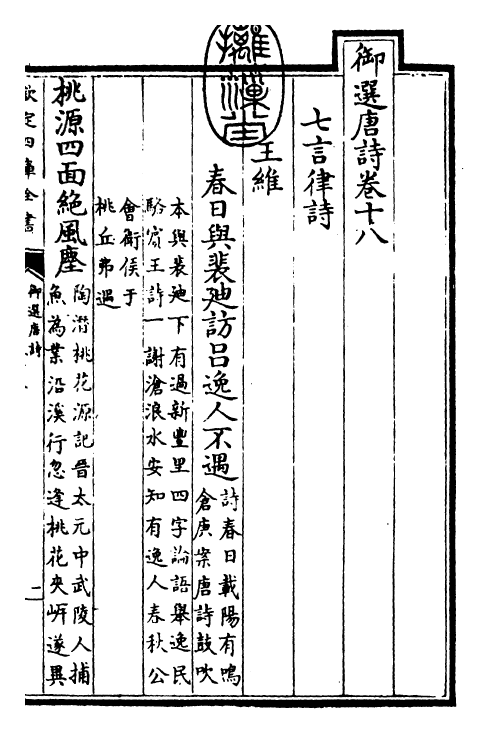 御選唐詩卷十八
七言律詩
王維
春日與裴迪訪呂逸人不遇
詩春日載陽有鳴
倉庚案唐詩鼓吹
本與裴迪下有過新豐里四字論語舉逸民
駱賓王詩一謝滄浪水安知有逸人春秋公
會衛侯于
桃丘弗遇
桃源四面絶風塵
陶潛桃花源記晉太元中武陵人捕
魚為業沿溪行忽逢桃花夾岸遂異
欽定四庫全書
御選唐詩